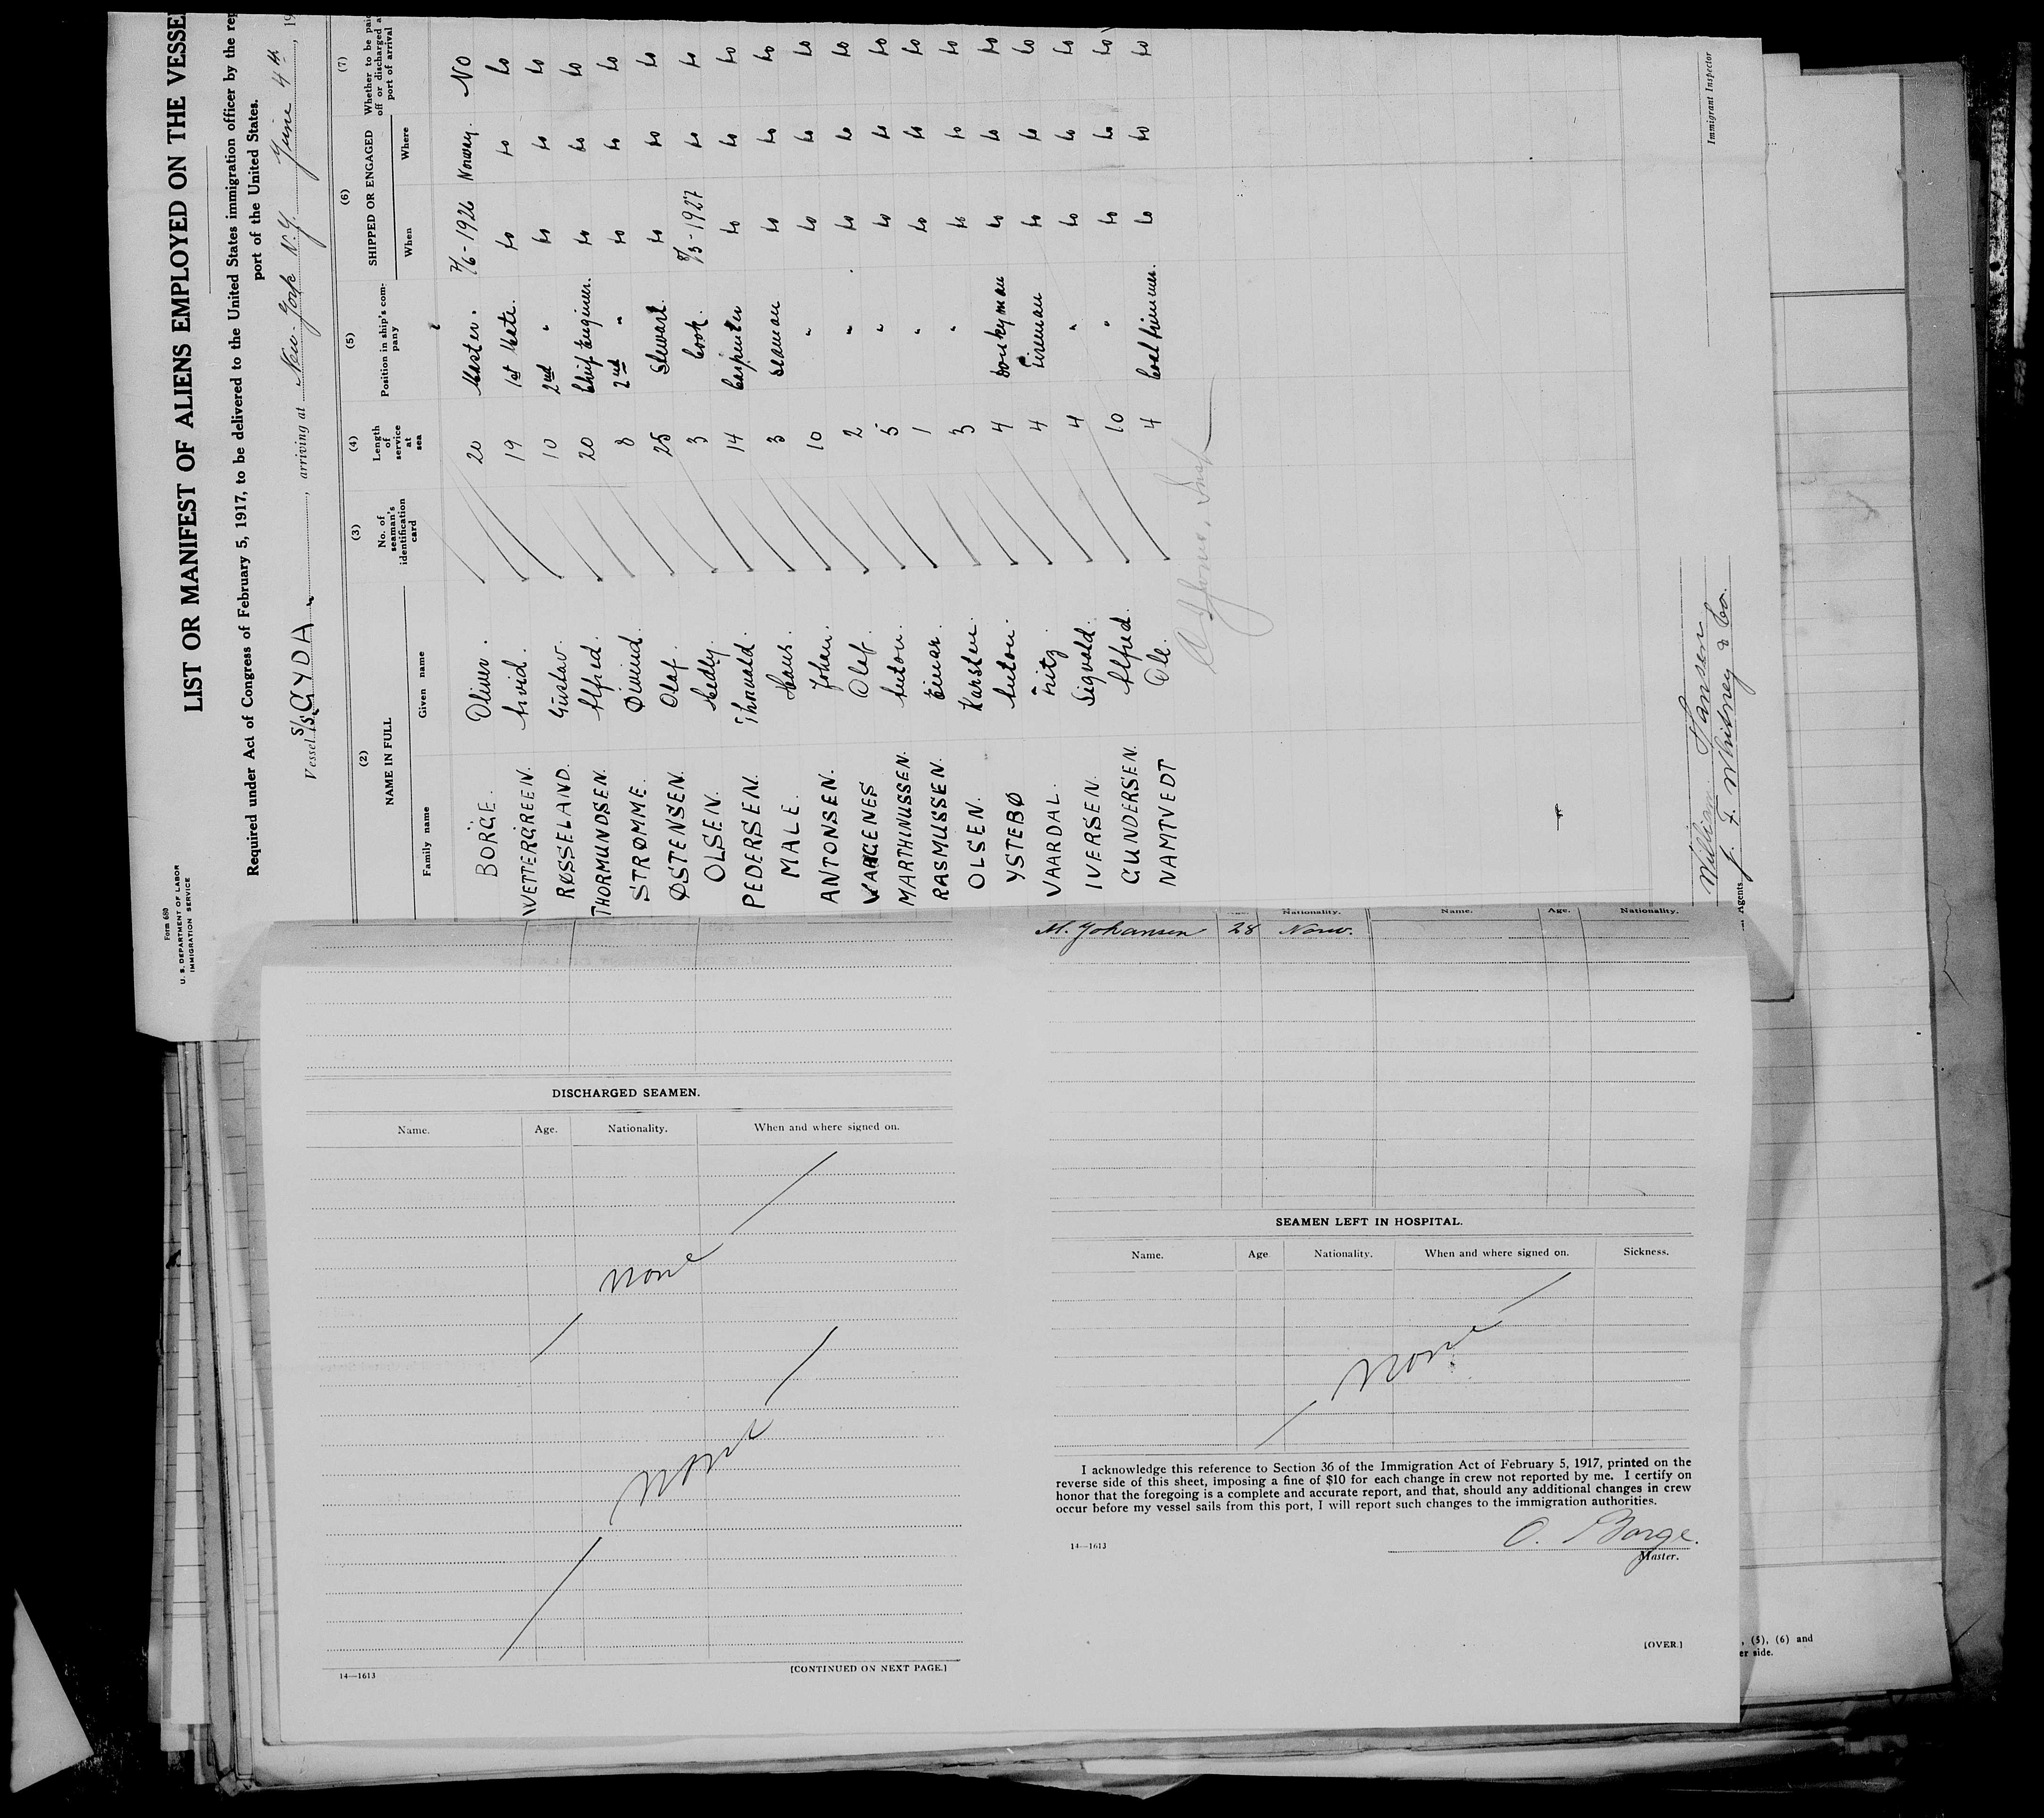 Form 680
U. S. DEPARTMENT OF LABOR
IMMIGRATION SERVICE
LIST OR MANIFEST OF ALIENS EMPLOYED ON THE VESSE
Required under Act of Congress of February 5, 1917, to be delivered to the United States immigration officer by the rep
port of the United States.
Vessel S/S GYDA, arriving at New York N.Y. June 4th, 19
(2) (3) (4) (5) (6) (7)
NAME IN FULL No. of seaman's identification card Length of service at sea Position in ship's company SHIPPED OR ENGAGED Whether to be paid off or discharged a port of arrival
Family name Given name When Where
BORGE. Oliver. 20 Master. 7/6-1926 Norway. NO
WETTERGREEN. Arvid. 19 1st Mate. to to to
RØSSELAND. Gustav. 10 2nd " to to to
THORMUNDSEN. Alfred. 20 Chief Engineer. to to to
STRØMME. Øivind. 8 2nd " to to to
ØSTENSEN. Olaf. 25 Steward. to to to
OLSEN. Medly. 3 Cook. 8/3-1927 to to
PEDERSEN. Thorvald. 14 Carpenter to to to
MALE. Hans. 3 Seaman to to to
ANTONSEN. Johan. 10 " to to to
VAAGENES Olaf. 2 " to to to
MARTHINUSSEN. Anton. 5 " to to to
RASMUSSEN. Einar. 1 " to to to
OLSEN. Karsten. 3 " to to to
YSTEBØ Anton. 4 Donkeyman to to to
VAARDAL. Fritz. 4 Fireman to to to
IVERSEN. Sigvald. 4 " to to to
GUNDERSEN. Alfred. 10 " to to to
NAMTVEDT Ole. 4 Coal trimmer. to to to
William Hansen
Agents J. F. Whitney & Co.
Immigrant Inspector
Nationality. Name. Age. Nationality.
M. Johansen 28 Norw.
DISCHARGED SEAMEN.
Name. Age. Nationality. When and where signed on.
None
None
14—1613 [CONTINUED ON NEXT PAGE.]
SEAMEN LEFT IN HOSPITAL.
Name. Age Nationality. When and where signed on. Sickness.
None
I acknowledge this reference to Section 36 of the Immigration Act of February 5, 1917, printed on the
reverse side of this sheet, imposing a fine of $10 for each change in crew not reported by me. I certify on
honor that the foregoing is a complete and accurate report, and that, should any additional changes in crew
occur before my vessel sails from this port, I will report such changes to the immigration authorities.
O. Borge.
14—1613 Master.
[OVER.]
, (5), (6) and
er side.